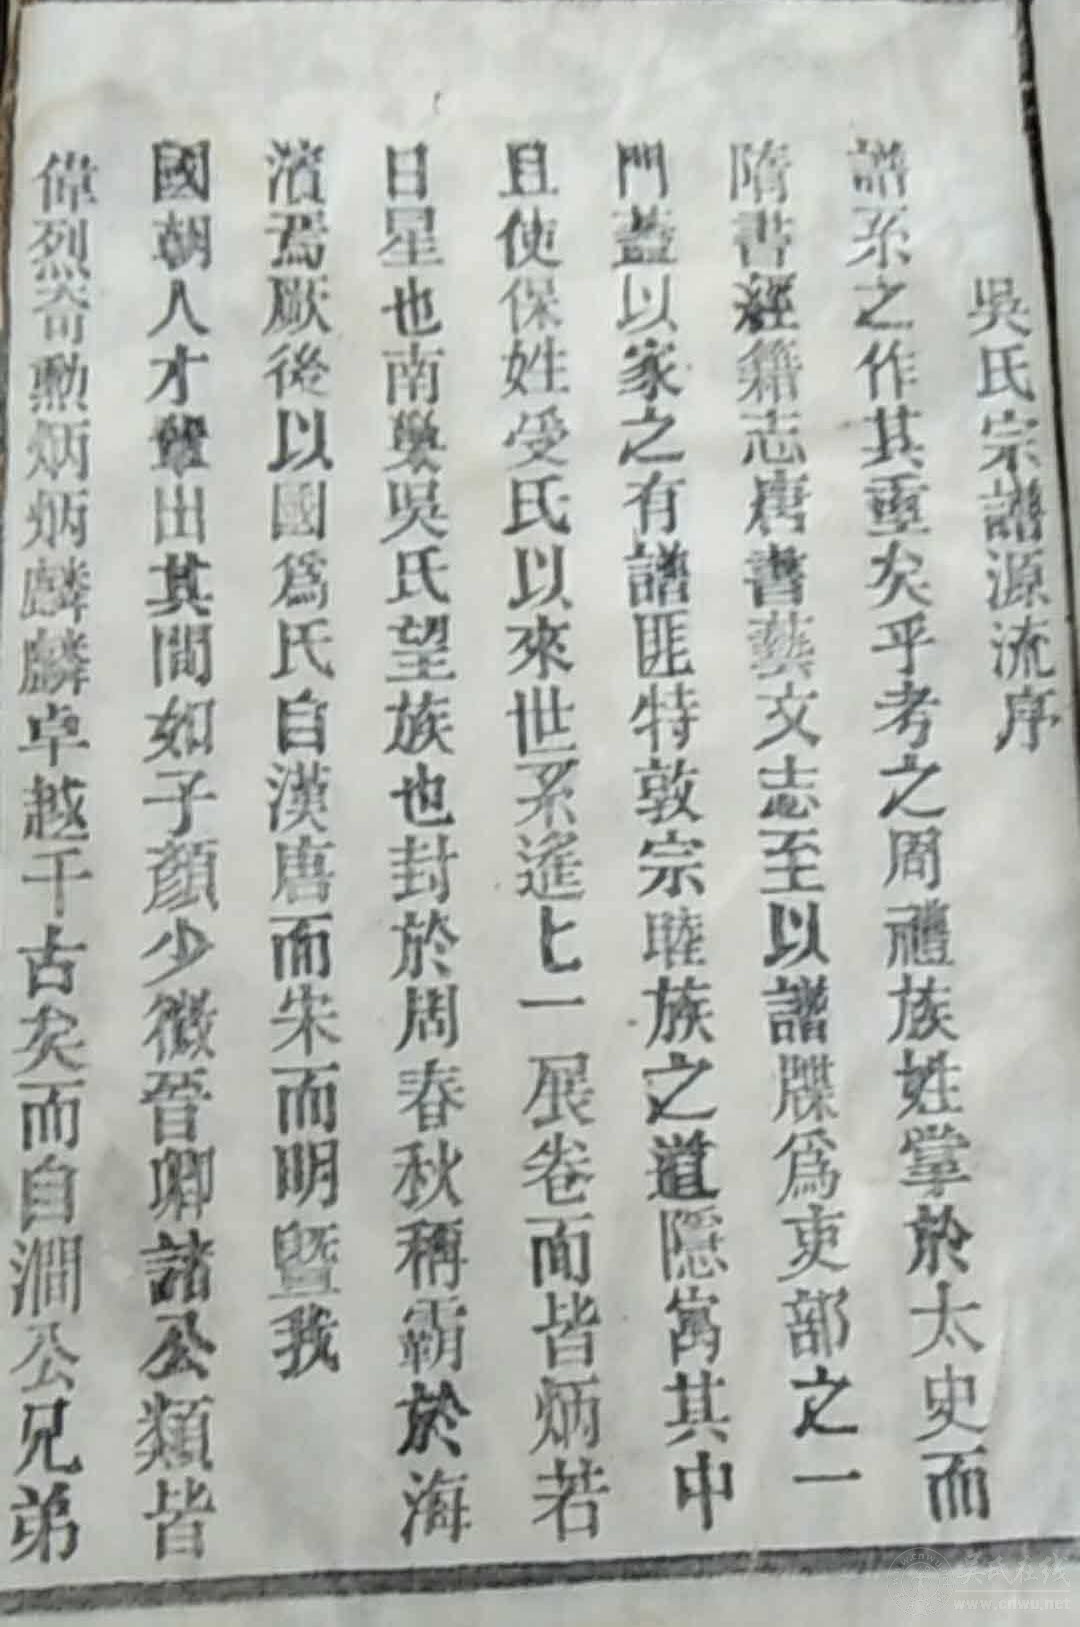 吳氏宗譜源流序
譜系之作其重矣乎考之周禮族姓掌於太史而
隋書經籍志唐書藝文志至以譜牒為吏部之一
門蓋以家之有譜匪特敦宗睦族之道隱寓其中
且使保姓受氏以來世系遙遙一展卷而皆炳若
日星也南奧吳氏望族也封於周春秋稱霸於海
濱焉厥後以國為氏自漢唐而宋而明暨我
國朝人才輩出其間如子顏少微晉卿諸公類皆
偉烈奇勳炳炳麟麟卓越千古矣而自澗公兄弟
吴氏在线
www.cnwu.net